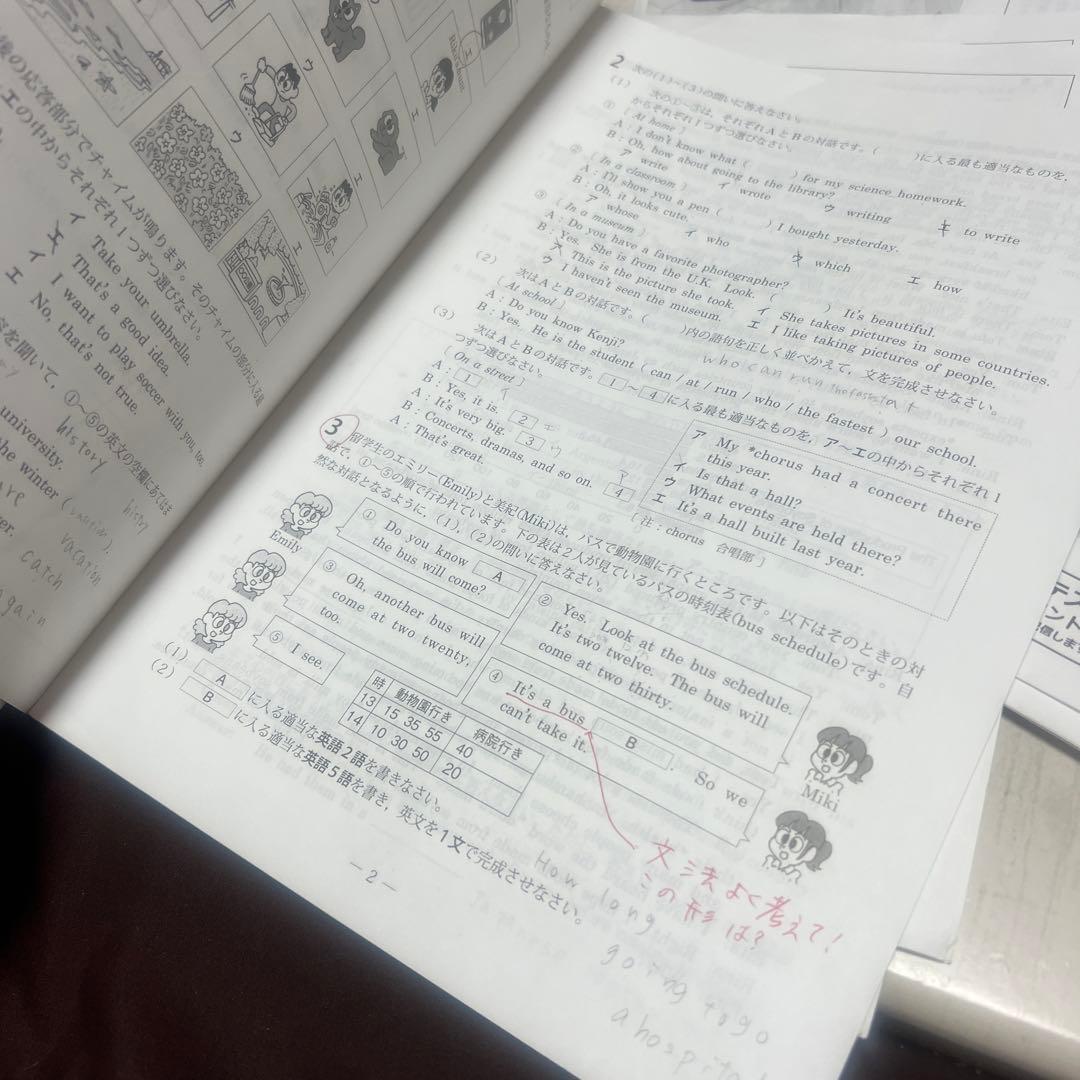 ウ
エ
ウ
エ
エ
の応答部分でチャイムが鳴ります。そのチャイムの部分に入る
エの中からそれぞれ1つずつ選びなさい。
イ Take your umbrella.
エ That's a good idea.
イ I want to play soccer with you, too.
エ No, that's not true.
を聞いて，①～⑤の英文の空欄にあてはま
history
university.
the winter (vacation).
vacation
catch
again
2 次の(1)～(3)の問いに答えなさい。
(1) 次の①～③は，それぞれAとBの対話です。( )に入る最も適当なものを，
からそれぞれ1つずつ選びなさい。
① [ At home ]
A : I don't know what ( ) for my science homework.
B : Oh, how about going to the library?
ア write イ wrote ウ writing エ to write
② [ In a classroom ]
A : I'll show you a pen ( ) I bought yesterday.
B : Oh, it looks cute.
ア whose イ who ウ which エ how
③ [ In a museum ]
A : Do you have a favorite photographer?
B : Yes. She is from the U.K. Look. ( ) It's beautiful.
ア This is the picture she took. イ She takes pictures in some countries.
ウ I haven't seen the museum. エ I like taking pictures of people.
(2) 次はAとBの対話です。( )内の語句を正しく並べかえて，文を完成させなさい。
[ At school ]
A : Do you know Kenji?
who can run the fastest at
B : Yes. He is the student ( can / at / run / who / the fastest ) our school.
(3) 次はAとBの対話です。1～4に入る最も適当なものを，ア～エの中からそれぞれ1
つずつ選びなさい。
[ On a street ]
A : 1
B : Yes, it is. 2
A : It's very big. 3 ウ
B : Concerts, dramas, and so on. 4 ア
A : That's great.
ア My *chorus had a concert there
this year.
イ Is that a hall?
ウ What events are held there?
エ It's a hall built last year.
[ 注：chorus 合唱部 ]
3 留学生のエミリー(Emily)と美紀(Miki)は，バスで動物園に行くところです。以下はそのときの対
話で，①～⑤の順で行われています。下の表は2人が見ているバスの時刻表(bus schedule)です。自
然な対話となるように，(1)，(2)の問いに答えなさい。
① Do you know A
the bus will come?
Emily
② Yes. Look at the bus schedule.
It's two twelve. The bus will
come at two thirty.
③ Oh, another bus will
come at two twenty,
too.
④ It's a bus B . So we
can't take it.
⑤ I see.
Miki
時 動物園行き 病院行き
13 15 35 55 40
14 10 30 50 20
(1) A に入る適当な英語2語を書きなさい。
(2) B に入る適当な英語5語を書き，英文を1文で完成させなさい。
文法よく考えて!
この形は?
How long
going to go
a hospital
－2－